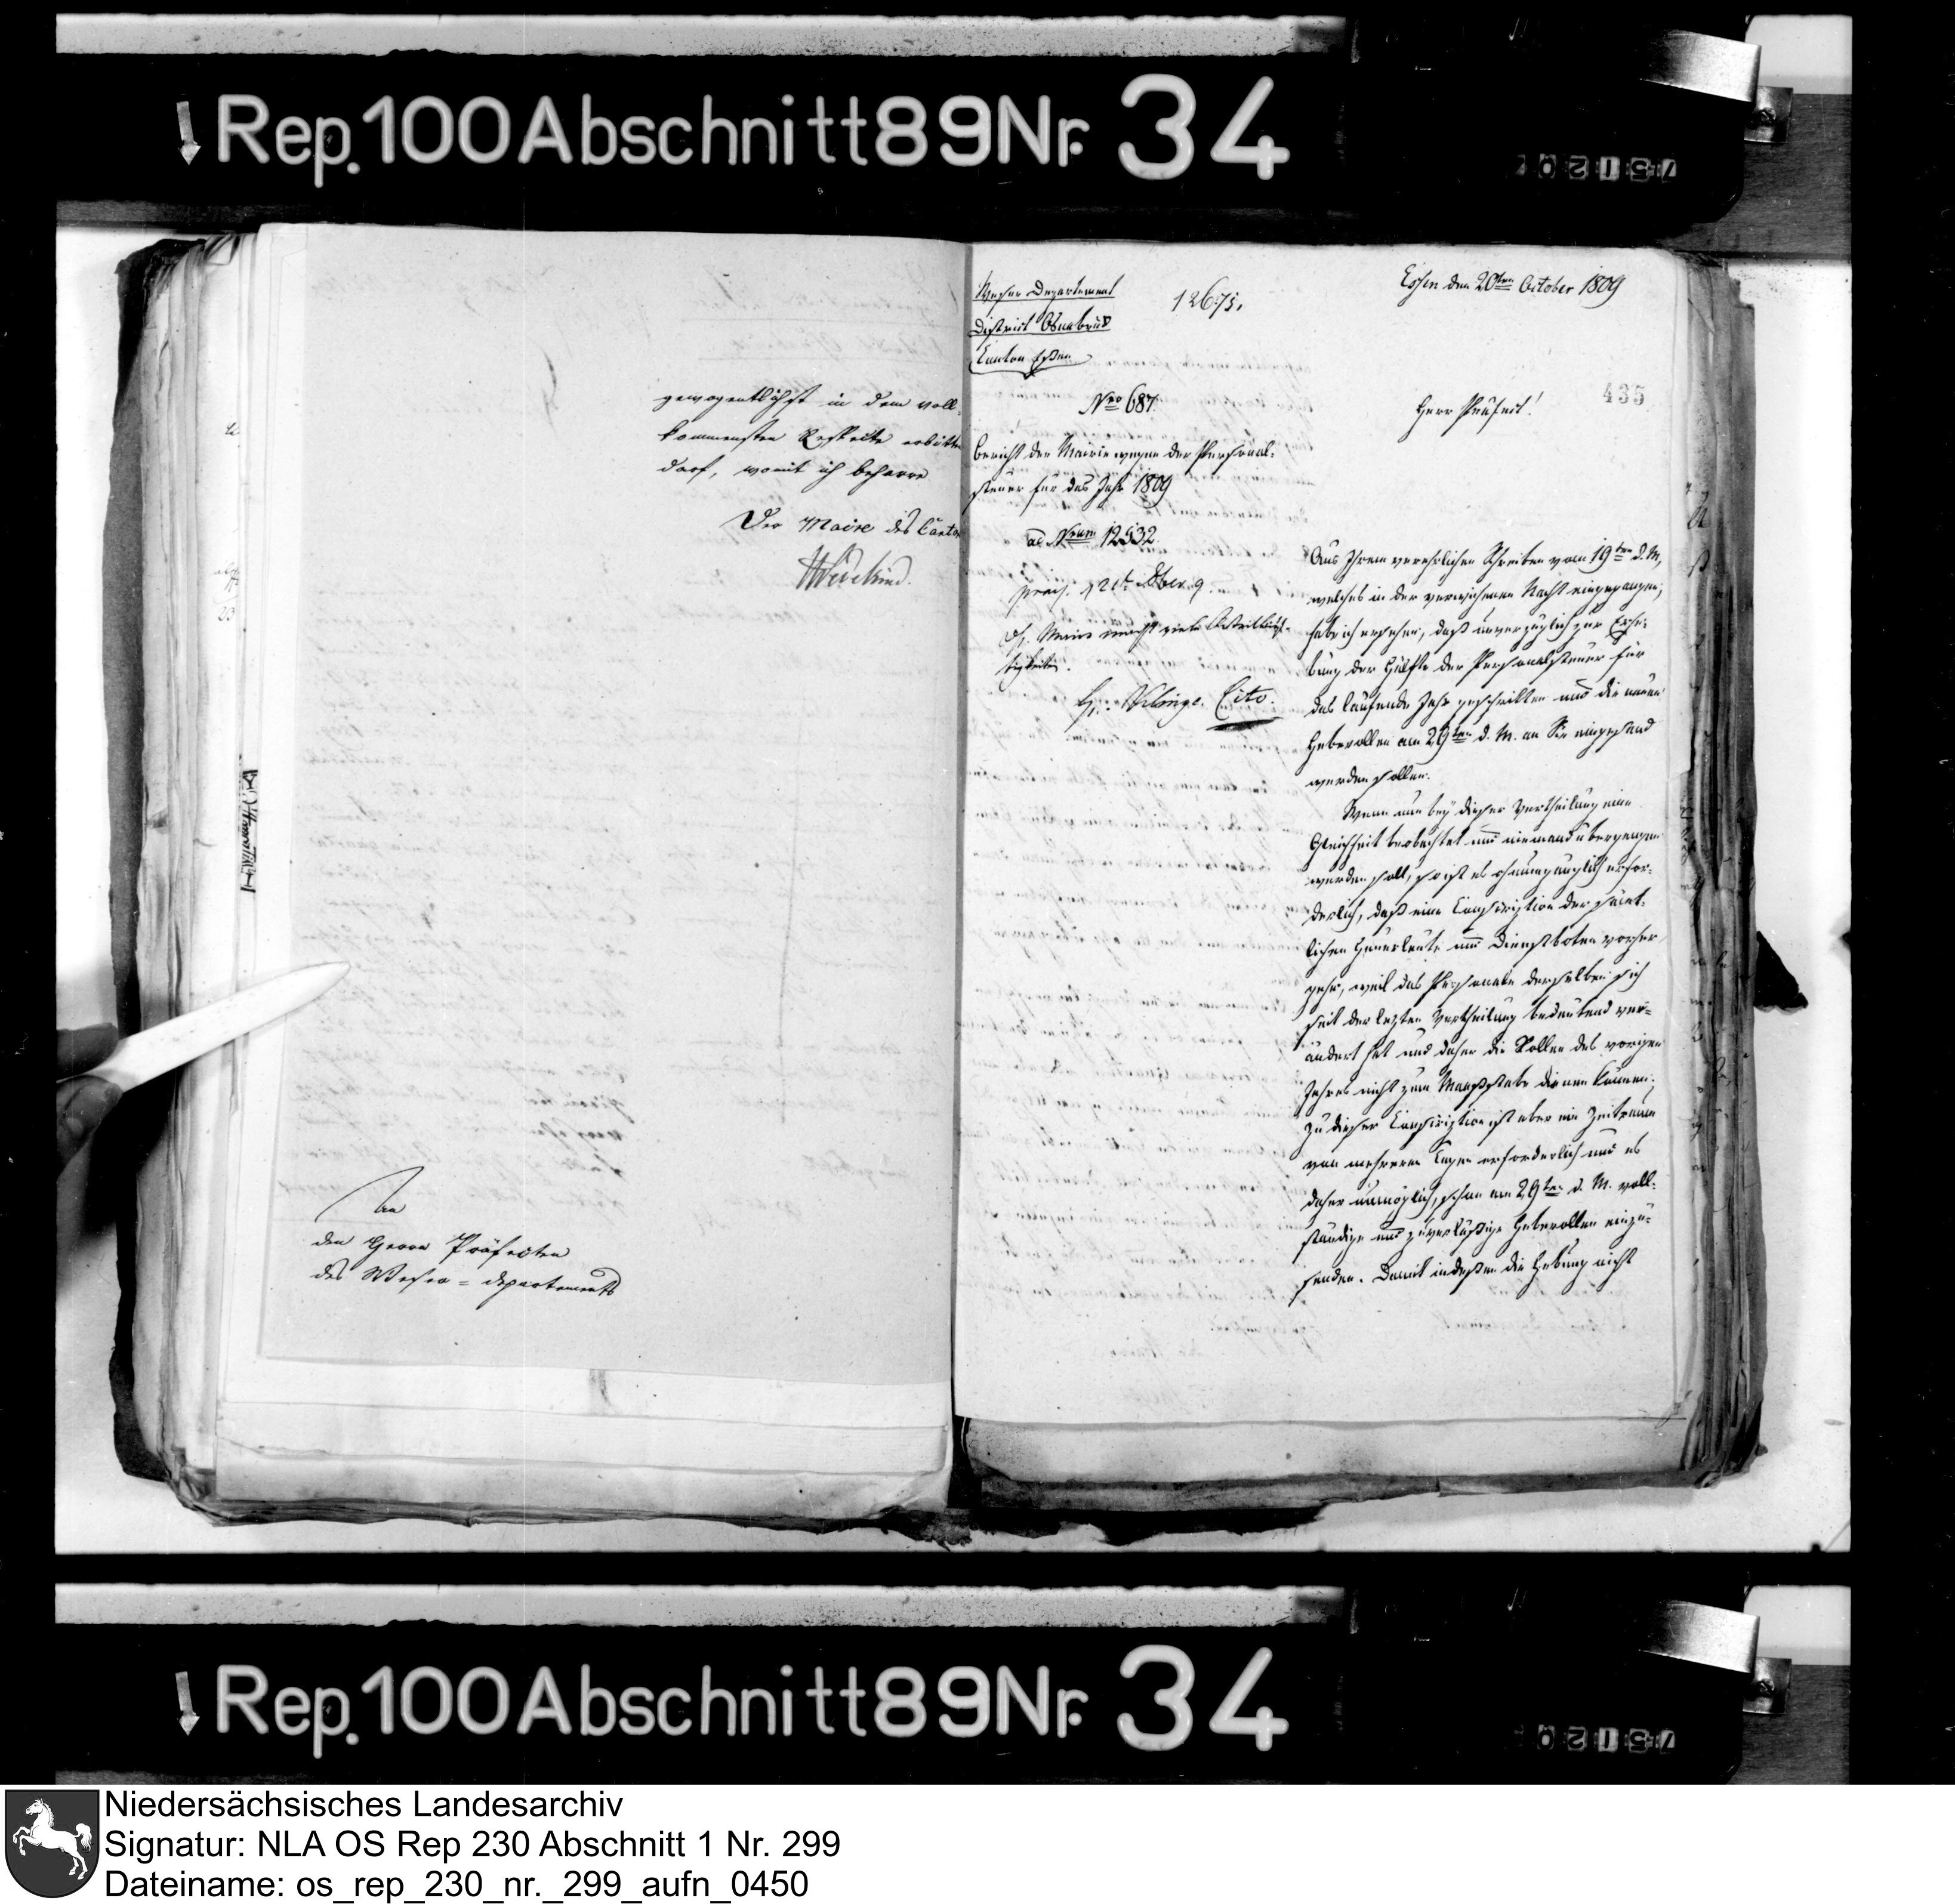 Rep. 100 Abschnitt 89 Nr. 34
gewogentlichst in dem voll-
kommensten Respecte erbitten
darf, womit ich beharre
Der Maire des Canton
Wedekind.
An
den Herrn Präfecten
des Weser-departements
Weser Departement
District Osnabrück
Canton Essen
12675.
Essen den 20ten October 1809
435
Nro 687.
Herr Präfect!
Bericht der Mairie wegen der Personal-
steuer für das Jahr 1809
ad Nrum 12532.
Aus Ihrem verehrlichen Schreiben vom 19ten d. M,
welches in der verwichenen Nacht eingegangen,
habe ich ersehen, daß unverzüglich zur Erhe-
bung der Hälfte der Personalsteuer für
das laufende Jahr geschritten und die neuen
Heberollen am 29ten d. M. an Sie eingesand
werden sollen.
Wenn nun bey dieser Vertheilung eine
Gleichheit beobachtet und niemand übergangen
werden soll, so ist es ohnumgänglich erfor-
derlich, daß eine Conscription der sämt-
lichen Heuerleute und Dienstboten vorher
gehe, weil das Personale derselben sich
seit der lezten Vertheilung bedeutend ver-
ändert hat und daher die Rollen des vorigen
Jahres nicht zum Maaßstabe dienen können;
Zu dieser Conscription ist aber ein Zeitraum
von mehreren Tagen erforderlich und es
daher unmöglich, schon am 29ten d. M. voll-
ständige und zuverläßige Heberollen einzu-
senden. Damit indeßen die Hebung nicht
praes. 21t 8ber 9.
Cito.
Rep. 100 Abschnitt 89 Nr. 34
Niedersächsisches Landesarchiv
Signatur: NLA OS Rep 230 Abschnitt 1 Nr. 299
Dateiname: os_rep_230_nr._299_aufn_0450